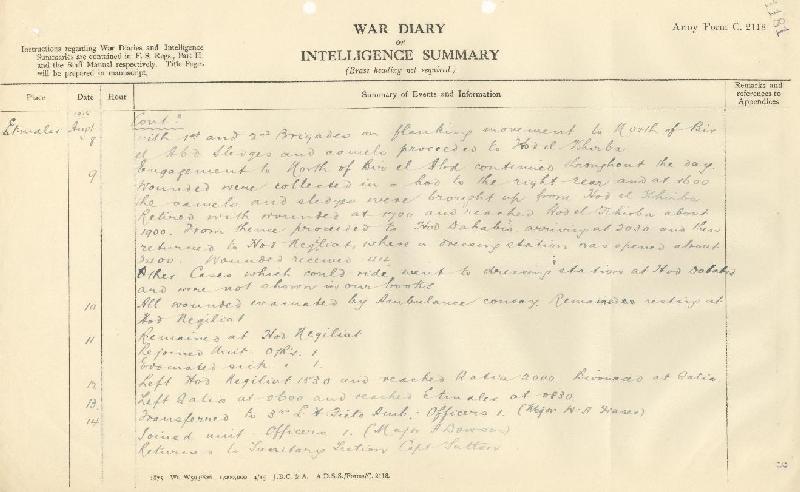 1181
WAR DIARY
or
INTELLIGENCE SUMMARY
(Erase heading not required.)
Army Form C. 2118
Instructions regarding War Diaries and Intelligence
Summaries are contained in F. S. Regs., Part II.
and the Staff Manual respectively. Title Pages
will be prepared in manuscript.
Place Date Hour Summary of Events and Information Remarks and
references to
Appendices
Etmaler 1916 Augt 8 Contd
with 1st and 2nd Brigades on flanking movement to North of Bir
el Abd Sledges and camels proceeded to Hod el Khirba
9 Engagement to North of Bir el Abd continued throughout the day
Wounded were collected in a hod to the right rear and at 1600
the camels and sledges were brought up from Hod el Khirba
Retired with wounded at 1700 and reached Hod el Khirba about
1900. From thence proceeded to Hod Dababis arriving at 2030 and then
returned to Hod Negiliat, where a dressing station was opened about
2400. Wounded received
Other Cases which could ride went to dressing station at Hod Dababis
and were not shown in our books
10 All wounded evacuated by Ambulance convoy Remainder resting at
Hod Negiliat
11 Remained at Hod Negiliat
Rejoined Unit 1
Evacuated sick 1
12 Left Hod Negiliat 1530 and reached Qatia 2000 Bivouaced at Qatia
13. Left Qatia at 0600 and reached Etmaler at 0830
14 Transferred to 3rd L H Field Amb. Officers 1. (Major W A Fraser)
Joined unit Officers 1. (Major Dawson)
Returned to Sanitary Section Capt Sutton
1875 Wt. W593/826 1,000,000 4/15 J.B.C. & A. A.D.S.S./Forms/C. 2118.